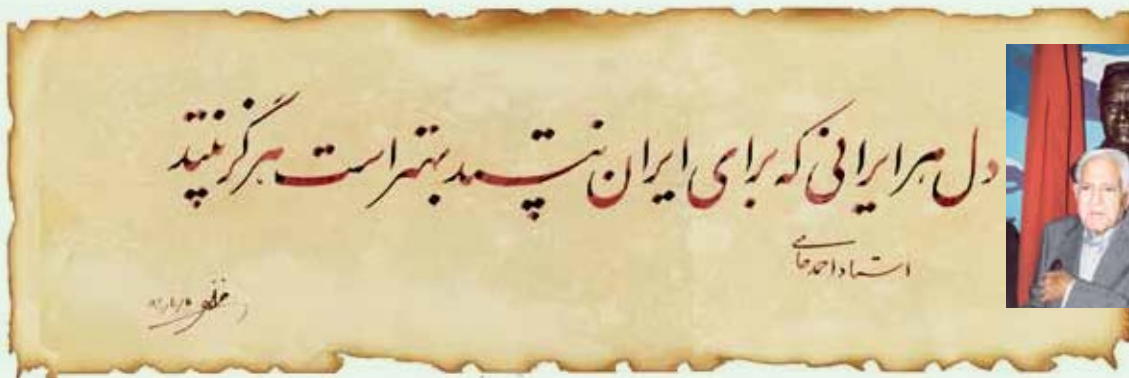 دل هر ایرانی که برای ایران نتپد بهتر است هرگز نتپد
استاد احمد حامی